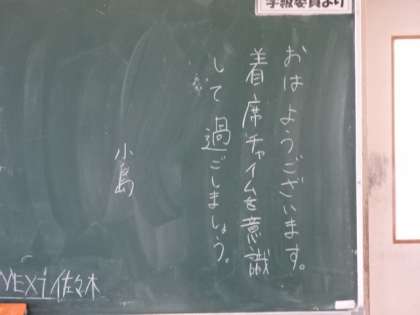 学級委員より
おはようございます。
着席チャイムを意識
して過ごしましょう。
小島
NEXT 佐々木